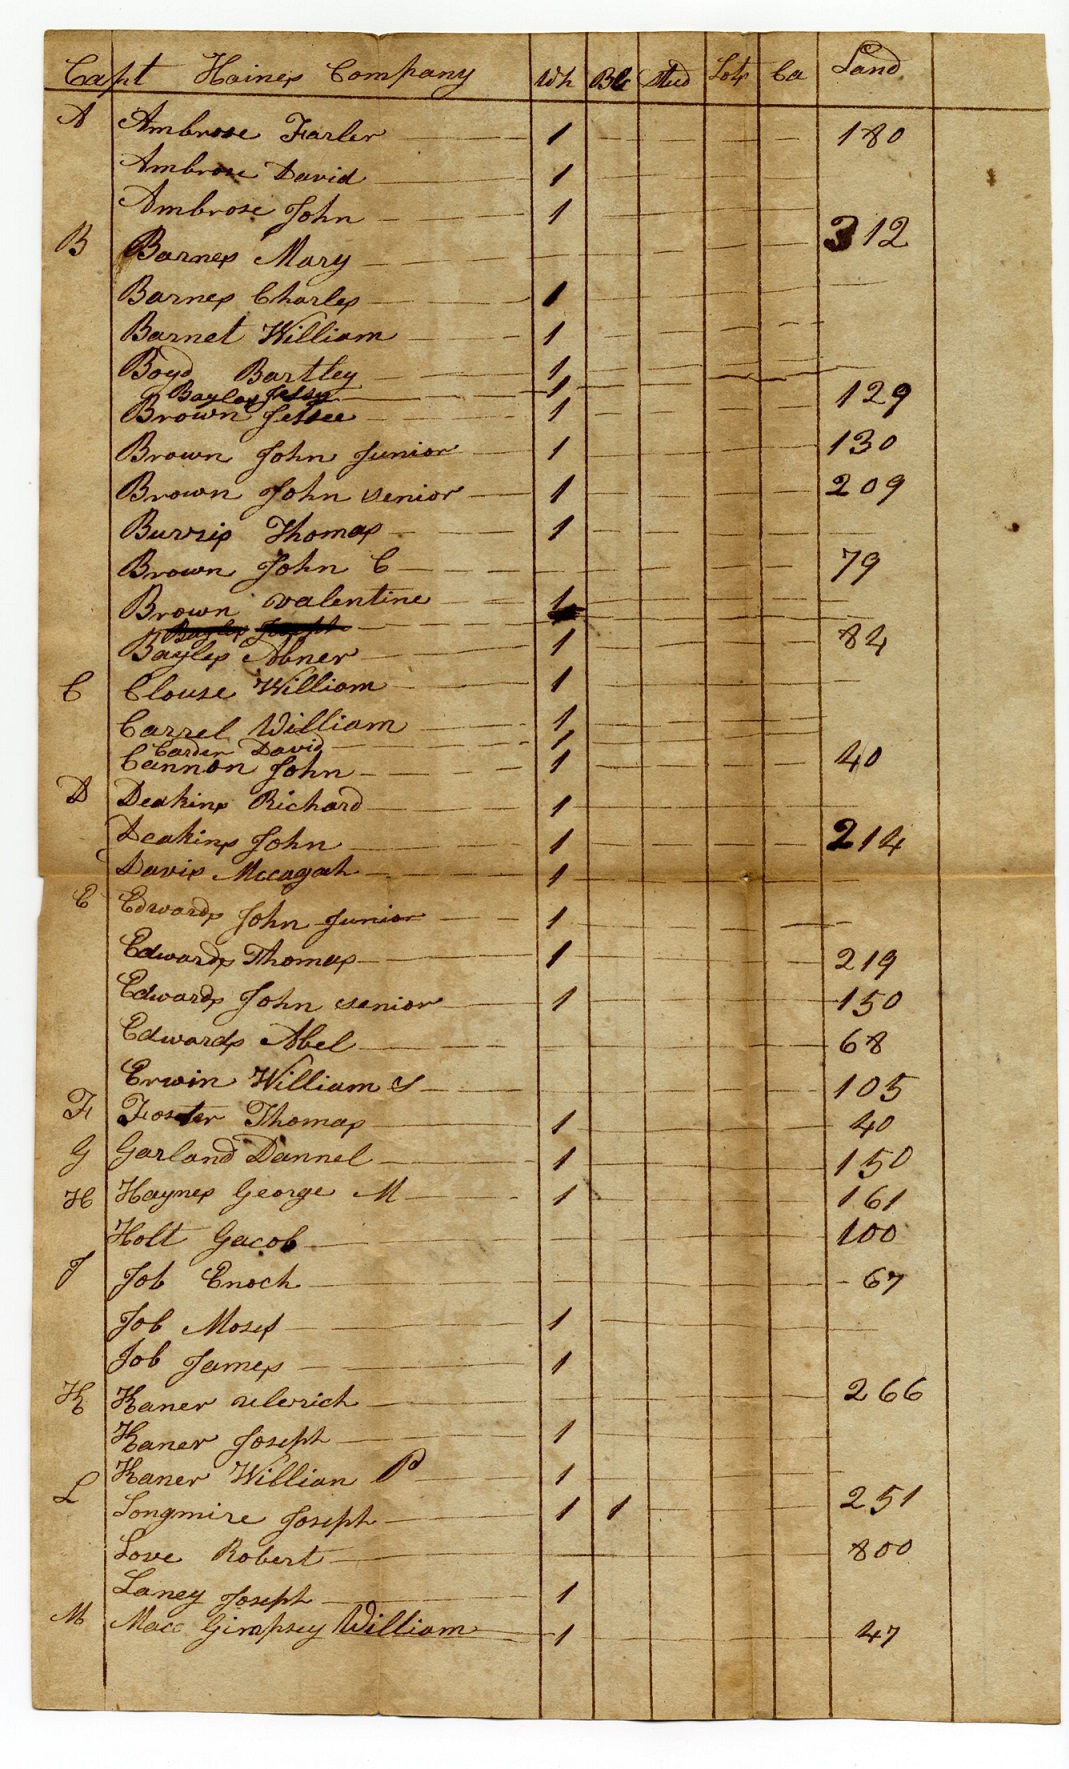 Capt Haines Company Wh Blk Stud Lots Ca Land
A Ambrose Farler 1 180
Ambrose David 1
Ambrose John 1
B Barnes Mary 312
Barnes Charles 1
Barnet William 1
Boyd Bartley 1
Bayley Jesse 1
Brown Jessee 1 129
Brown John Junior 1 130
Brown John senior 1 209
Burris Thomas 1
Brown John C 79
Brown valentine 1
Bayles Joseph
Bayles Abner 1 84
C Clouse William 1
Carrel William 1
Carder David 1
Cannon John 1 40
D Deakins Richard 1
Deakins John 1 214
Davis Mccagah 1
E Edwards John Junior 1
Edwards Thomas 1 219
Edwards John senior 1 150
Edwards Abel 68
Erwin William S 105
F Foster Thomas 1 40
G Garland Dannel 1 150
H Haynes George M 1 161
Holt Gacob 100
J Job Enoch 67
Job Moses 1
Job James 1
K Kaner ulerich 266
Kaner Joseph 1
Kaner Willian P 1
L Longmire Joseph 1 1 251
Love Robert 800
Laney Joseph 1
M Macc Gimpsey William 1 47